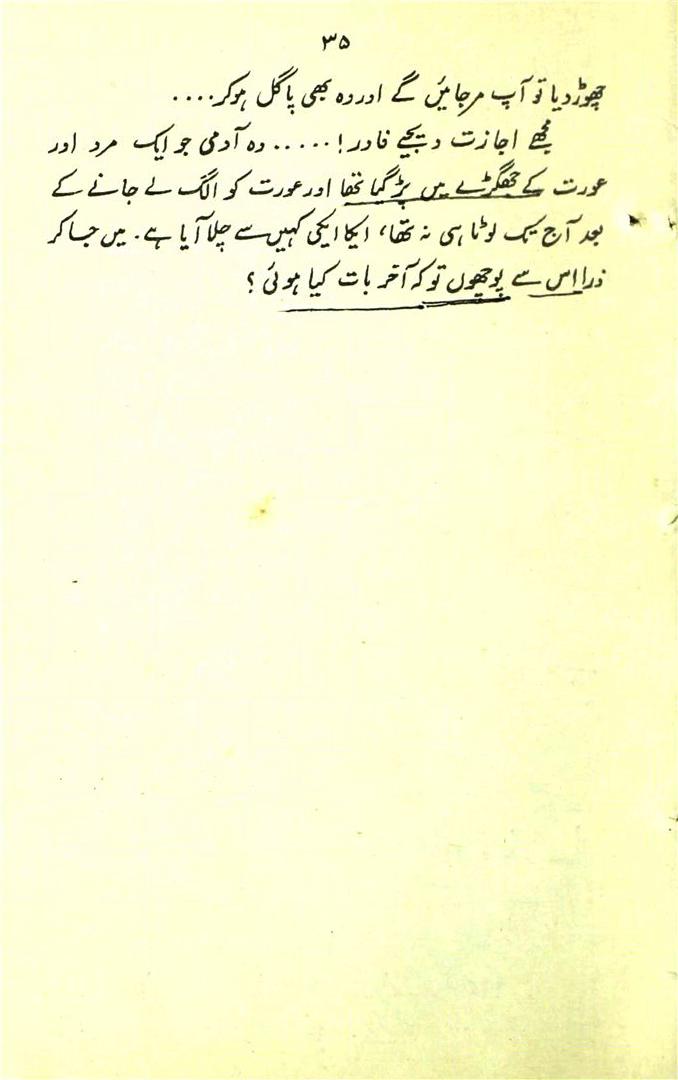 ۳۵
چھوڑ دیا تو آپ مر جائیں گے اور وہ بھی پاگل ہو کر....
مجھے اجازت دیجیے فادر!..... وہ آدمی جو ایک مرد اور
عورت کے جھگڑے میں پڑ گیا تھا اور عورت کو الگ لے جانے کے
بعد آج تک لوٹا ہی نہ تھا، ایکا ایکی کہیں سے چلا آیا ہے۔ میں جا کر
ذرا اس سے پوچھوں تو کہ آخر بات کیا ہوئی؟